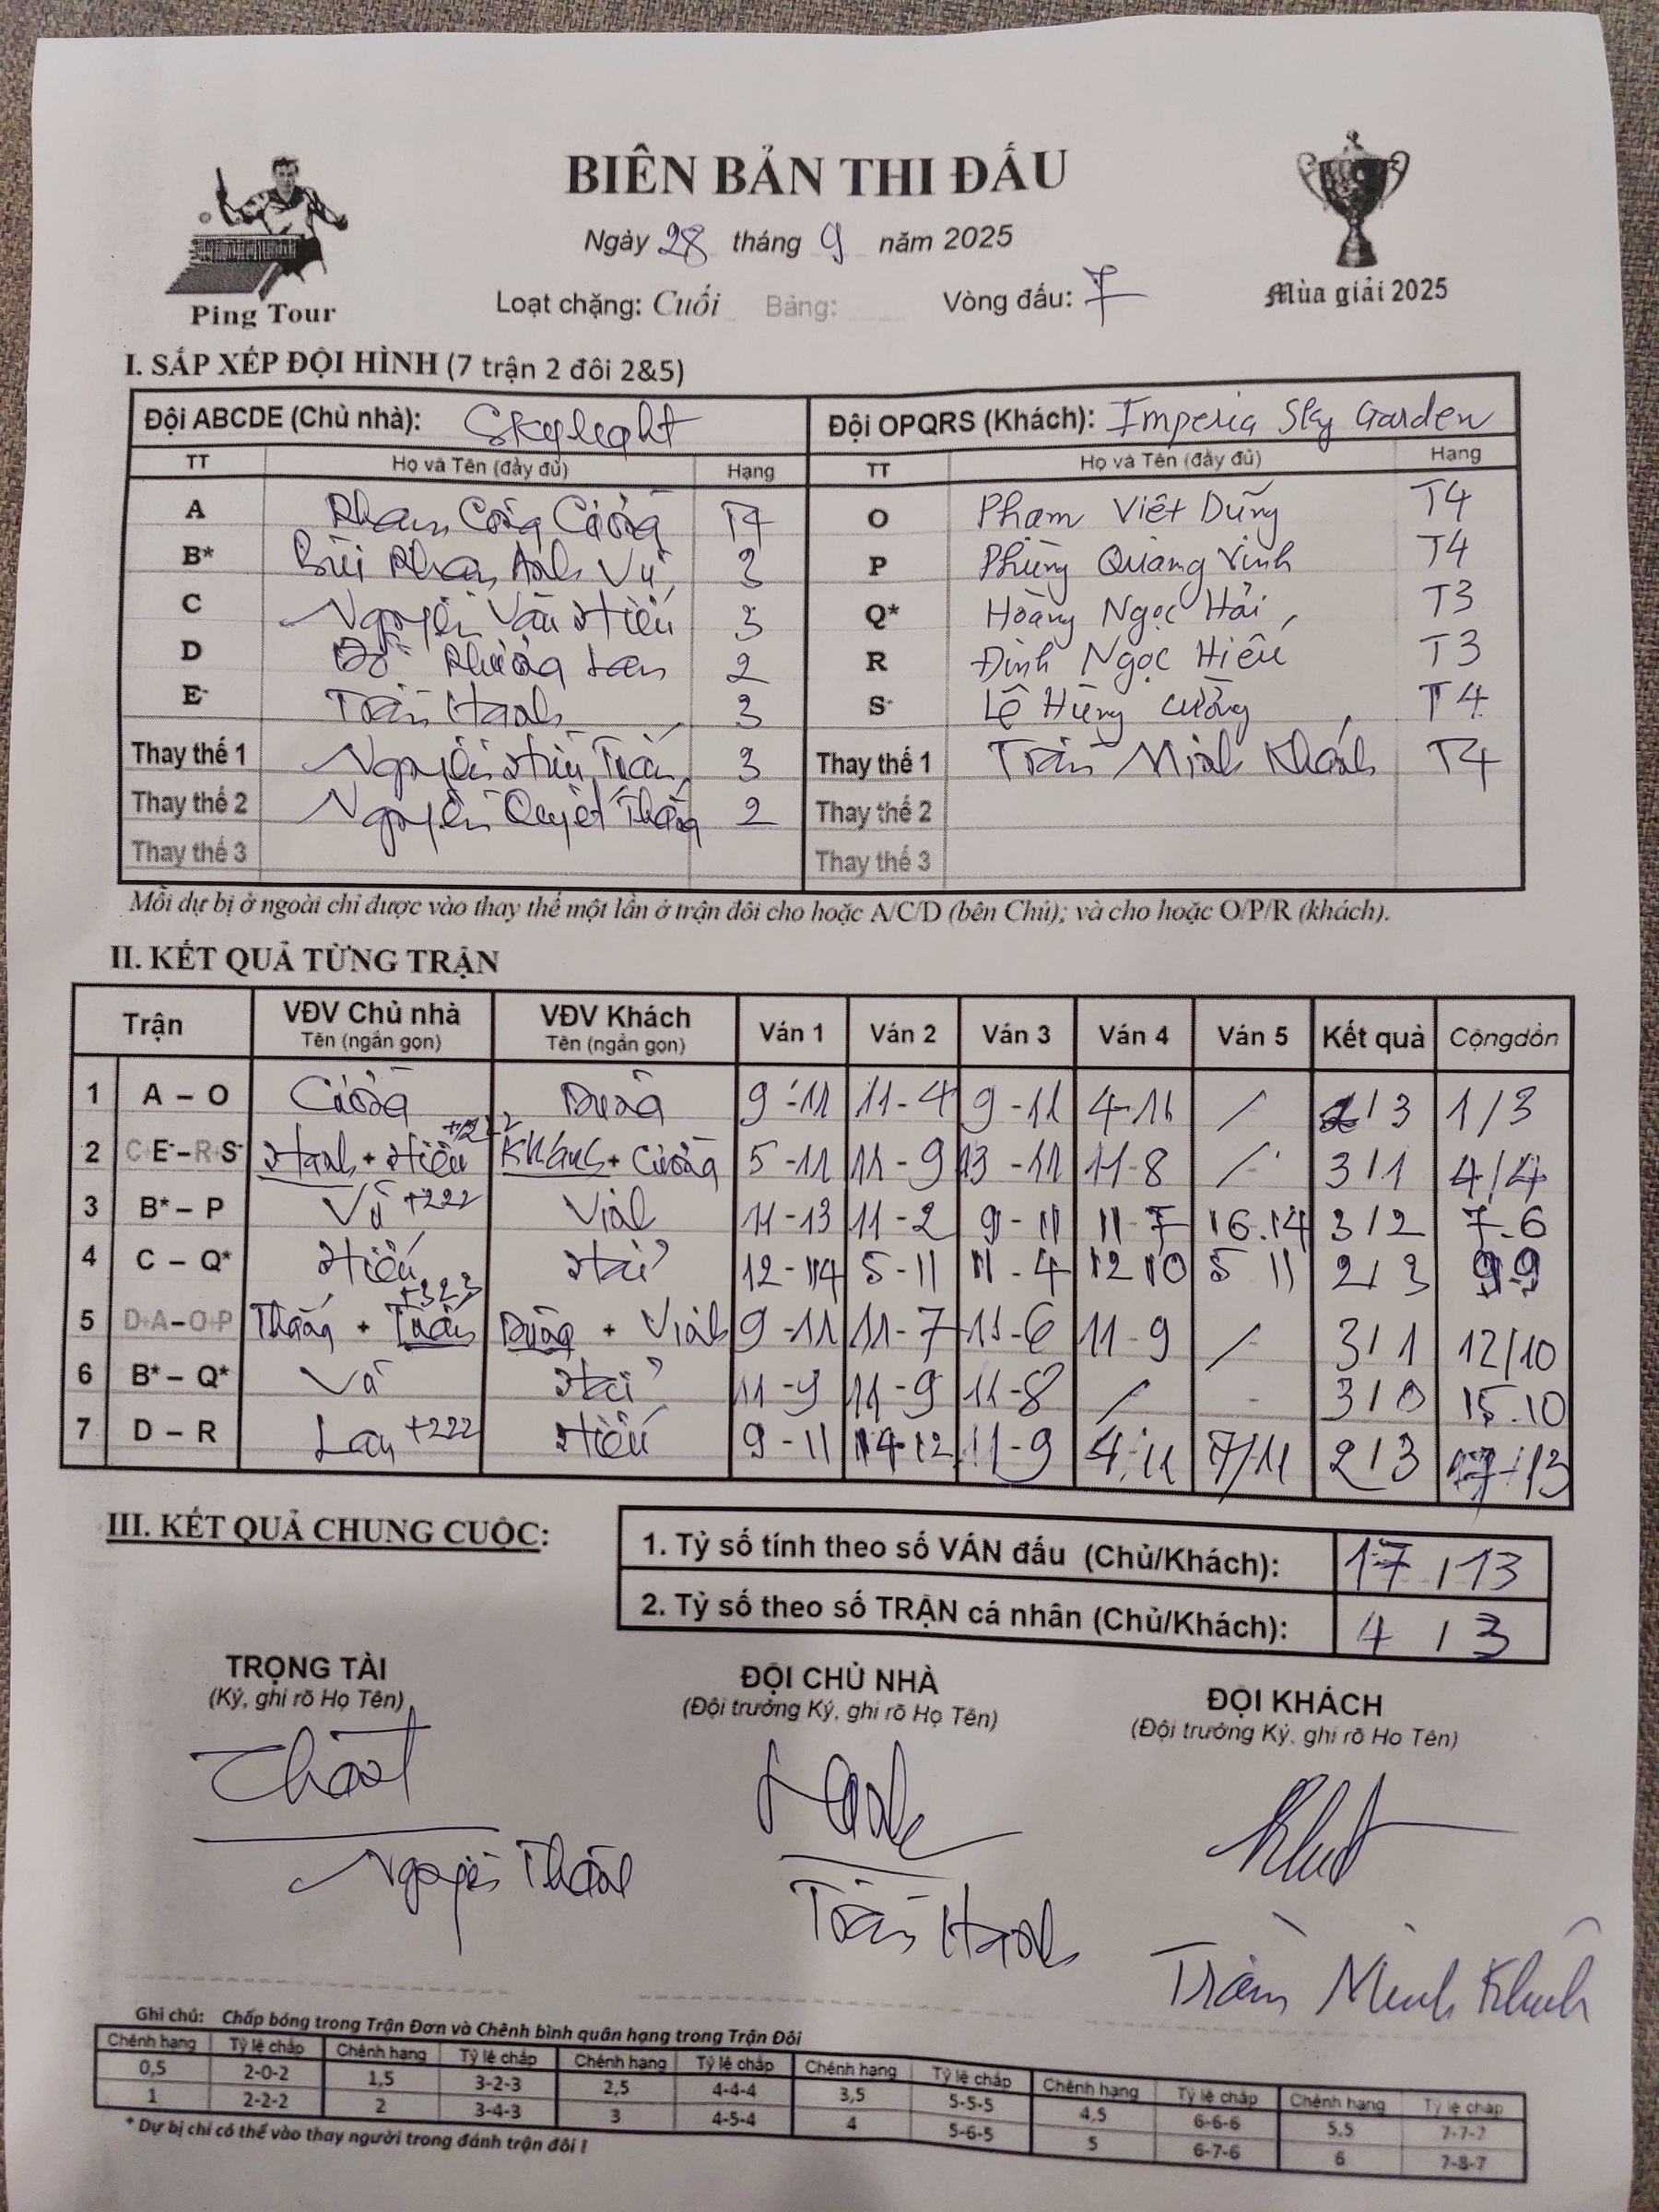 BIÊN BẢN THI ĐẤU
Ngày 28 tháng 9 năm 2025
Loạt chặng: Cuối Bảng: Vòng đấu: 7
Ping Tour
Mùa giải 2025
I. SẮP XẾP ĐỘI HÌNH (7 trận 2 đôi 2&5)
Đội ABCDE (Chủ nhà): Skylight Đội OPQRS (Khách): Imperia Sky Garden
TT Họ và Tên (đầy đủ) Hạng TT Họ và Tên (đầy đủ) Hạng
A Phạm Công Cường T4 O Phạm Việt Dũng T4
B* Bùi Phan Anh Vũ 3 P Phùng Quang Vinh T4
C Nguyễn Văn Hiếu 3 Q* Hoàng Ngọc Hải T3
D Đỗ Phương Lan 2 R Đinh Ngọc Hiếu T3
E- Trần Hạnh 3 S- Lê Hùng Cường T4
Thay thế 1 Nguyễn Hữu Tuấn 3 Thay thế 1 Trần Minh Khánh T4
Thay thế 2 Nguyễn Quyết Thắng 2 Thay thế 2
Thay thế 3 Thay thế 3
Mỗi dự bị ở ngoài chỉ được vào thay thế một lần ở trận đôi cho hoặc A/C/D (bên Chủ); và cho hoặc O/P/R (khách).
II. KẾT QUẢ TỪNG TRẬN
Trận VĐV Chủ nhà VĐV Khách Ván 1 Ván 2 Ván 3 Ván 4 Ván 5 Kết quả Cộngdồn
Tên (ngắn gọn) Tên (ngắn gọn)
1 A – O Cường Dũng 9-11 11-4 9-11 4-11 / / 3 1/3
2 C+E-–R+S- Hạnh + Hiếu Khánh + Cường 5-11 11-9 13-11 11-8 / 3/1 4/4
3 B* – P Vũ +222 Vinh 11-13 11-2 9-11 11-7 16.14 3/2 7-6
4 C – Q* Hiếu Hải 12-14 5-11 11-4 12 10 5 11 2/3 9-9
5 D+A–O+P Thắng + Tuấn +323 Dũng + Vinh 9-11 11-7 11-6 11-9 / 3/1 12/10
6 B* – Q* Vũ Hải 11-9 11-9 11-8 / - 3/0 15.10
7 D – R Lan +222 Hiếu 9-11 14-12 11-9 4-11 7/11 2/3 17-13
III. KẾT QUẢ CHUNG CUỘC:
1. Tỷ số tính theo số VÁN đấu (Chủ/Khách): 17 / 13
2. Tỷ số theo số TRẬN cá nhân (Chủ/Khách): 4 / 3
TRỌNG TÀI ĐỘI CHỦ NHÀ ĐỘI KHÁCH
(Ký, ghi rõ Họ Tên) (Đội trưởng Ký, ghi rõ Họ Tên) (Đội trưởng Ký, ghi rõ Họ Tên)
Hạnh
Trần Hạnh
Trần Minh Khánh
Ghi chú: Chấp bóng trong Trận Đơn và Chênh bình quân hạng trong Trận Đôi
Chênh hạng Tỷ lệ chấp Chênh hạng Tỷ lệ chấp Chênh hạng Tỷ lệ chấp Chênh hạng Tỷ lệ chấp Chênh hạng Tỷ lệ chấp Chênh hạng Tỷ lệ chấp
0,5 2-0-2 1,5 3-2-3 2,5 4-4-4 3,5 5-5-5 4,5 6-6-6 5,5 7-7-7
1 2-2-2 2 3-4-3 3 4-5-4 4 5-6-5 5 6-7-6 6 7-8-7
* Dự bị chỉ có thể vào thay người trong đánh trận đôi !